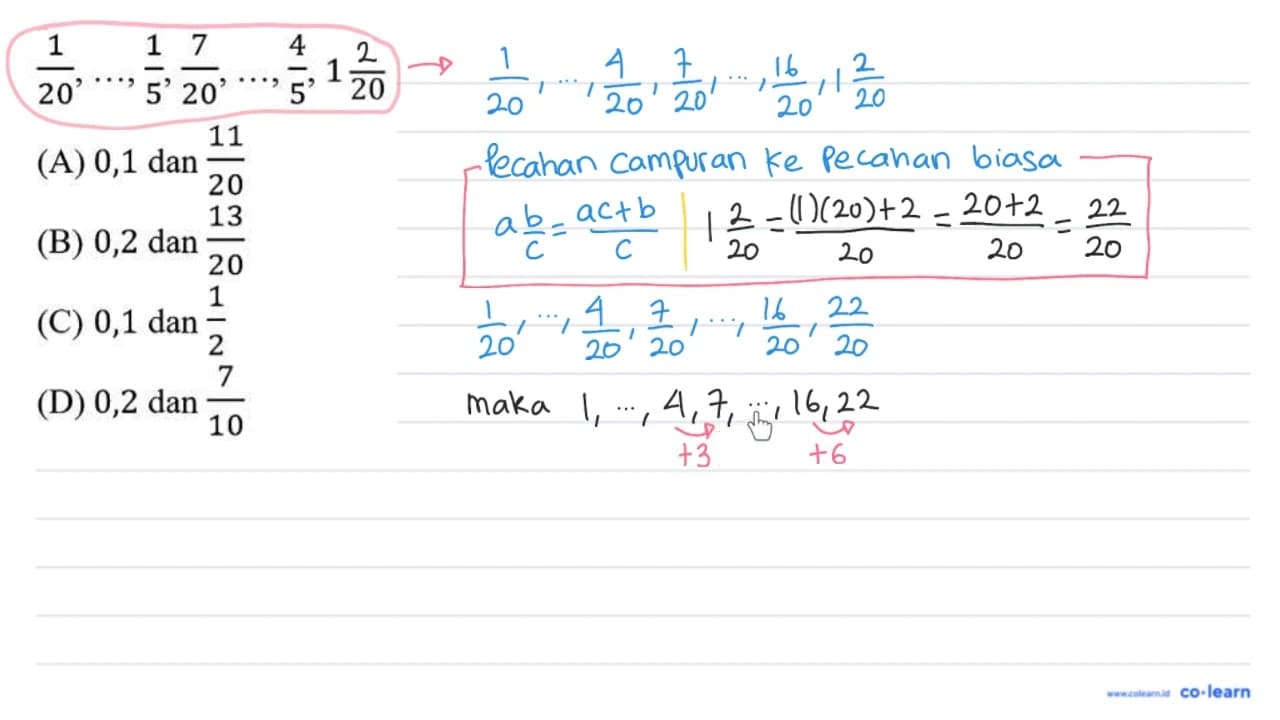 1/20, ..., 1/5, 7/20, ..., 4/5, 1 2/20
(A) 0,1 dan 11/20
(B) 0,2 dan 13/20
(C) 0,1 dan 1/2
(D) 0,2 dan 7/10
1/20, ..., 4/20, 7/20, ..., 16/20, 1 2/20
Pecahan campuran ke Pecahan biasa
a b/c = ac+b/c | 1 2/20 = (1)(20)+2/20 = 20+2/20 = 22/20
1/20, ..., 4/20, 7/20, ..., 16/20, 22/20
maka 1, ..., 4, 7, ..., 16, 22
+3 +6
www.colearn.id co·learn